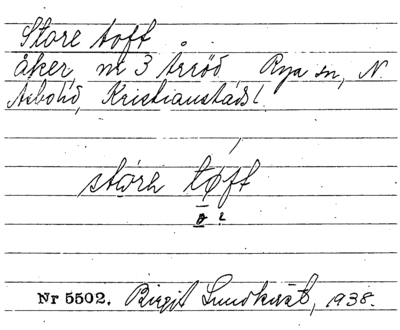 Store toft
åker, nr 3 Årröd, Rya sn, N.
Åsbo hd, Kristianstads l.
störe tǿft
o ?
Nr 5502. Birgit Lundkvist, 1938.